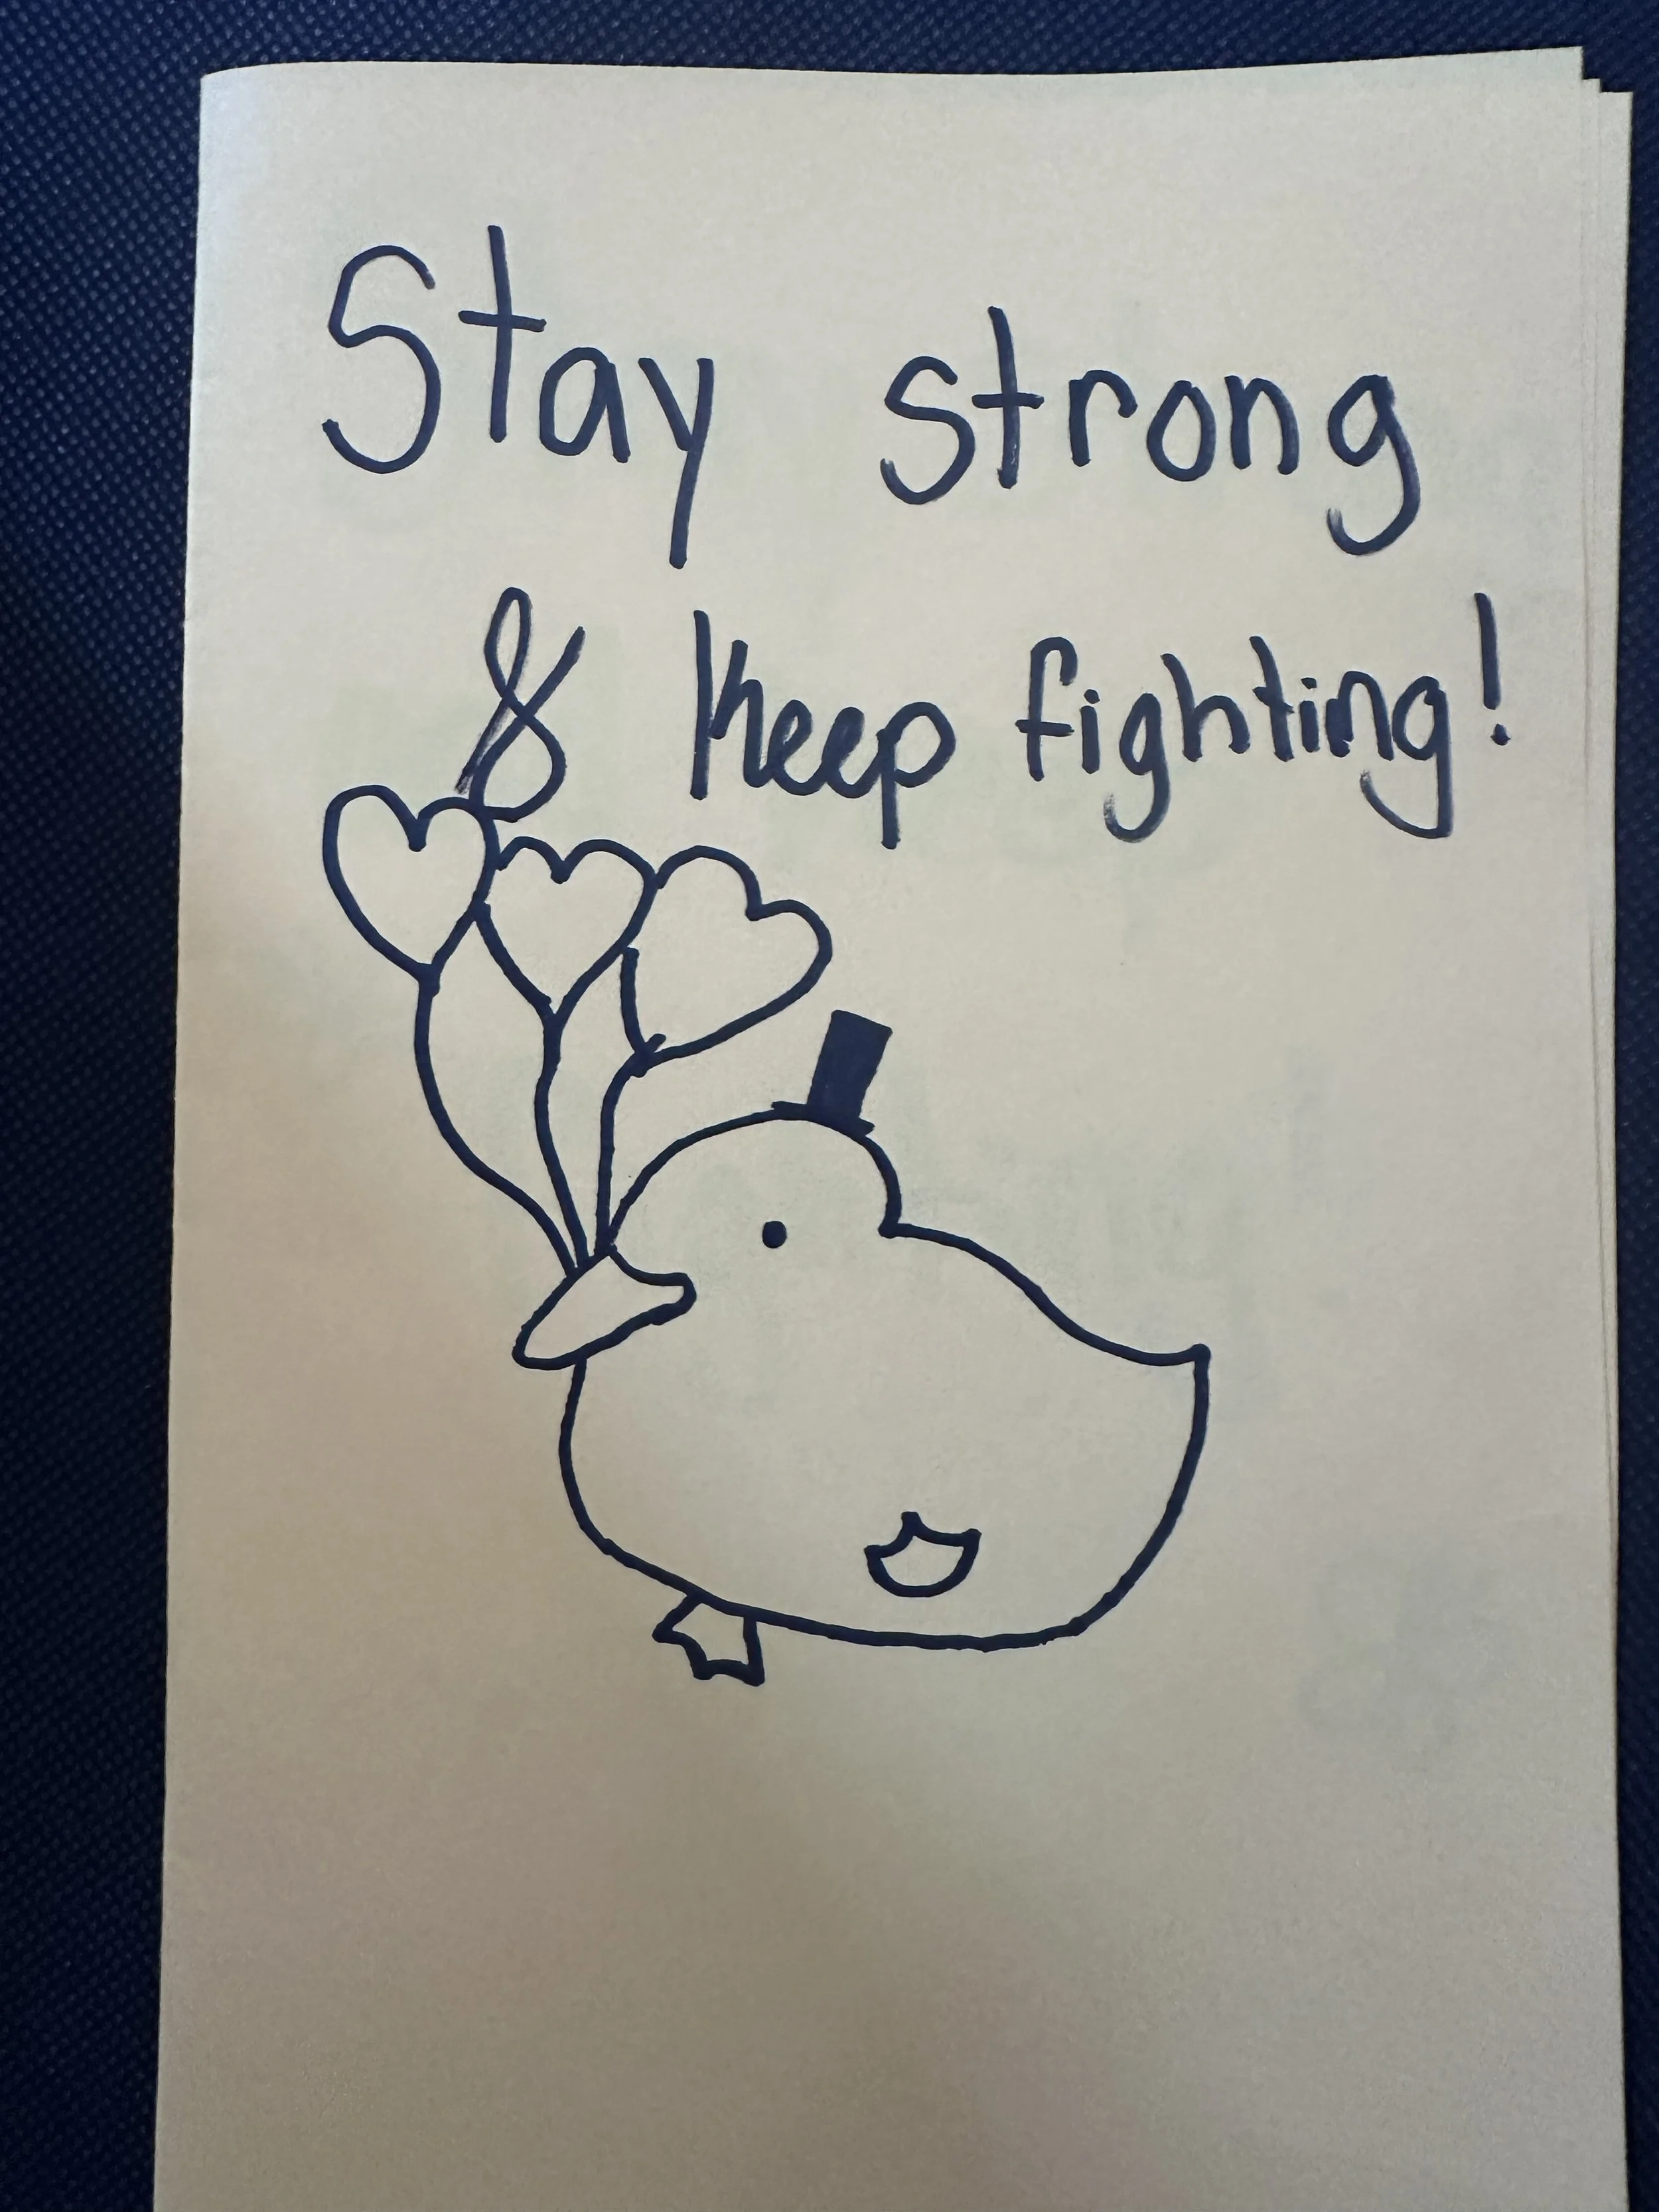 Stay strong
& Keep fighting!